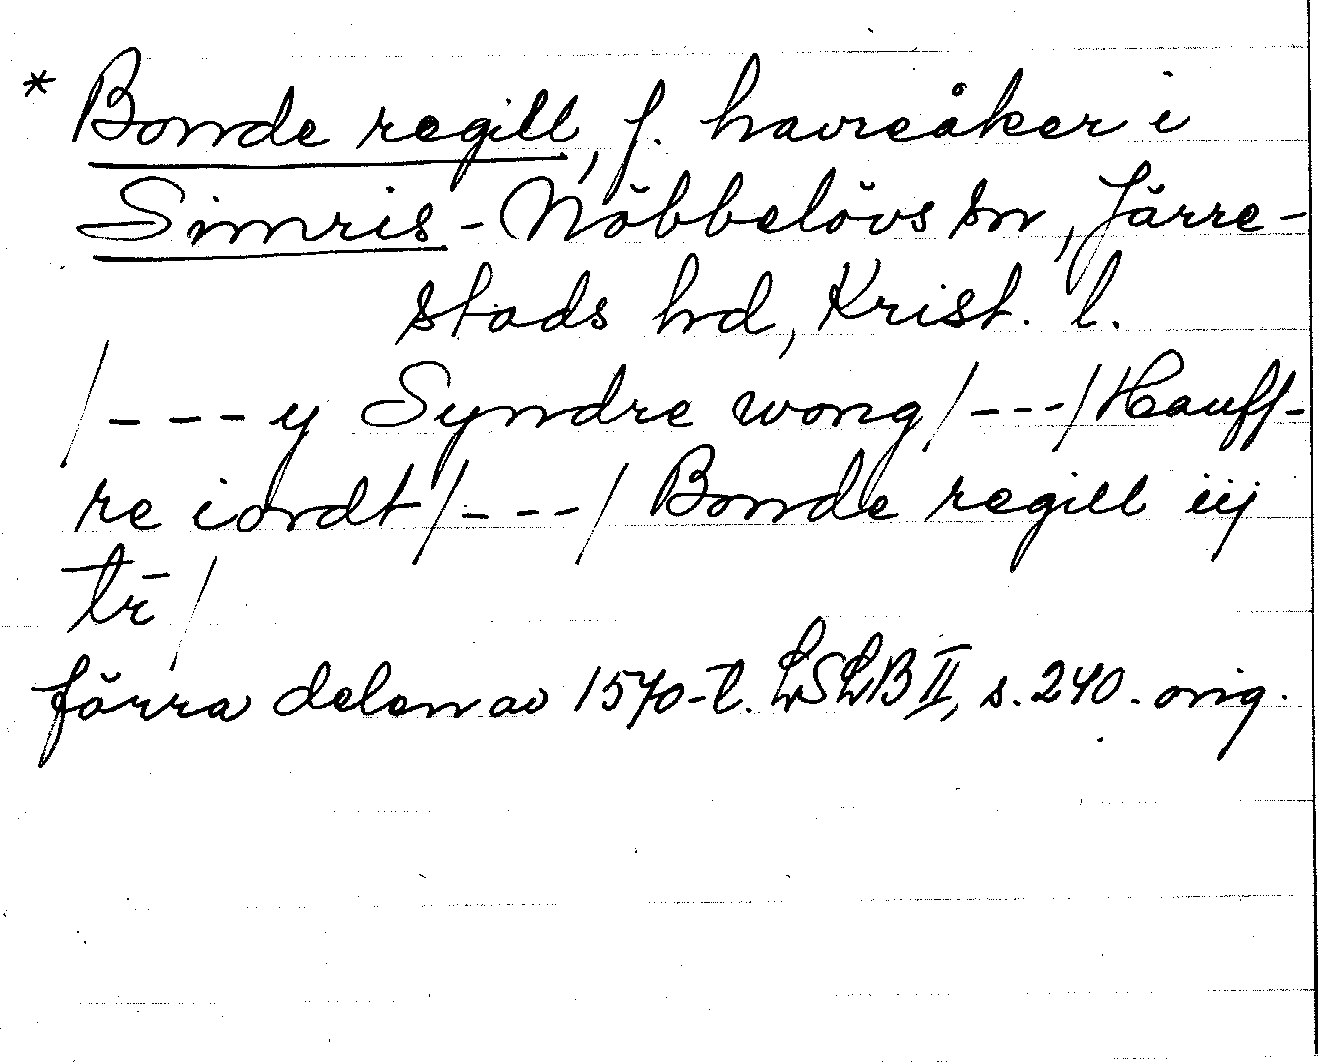 * Bonde regill, f. havreåker i
Simris-Nöbbelövs sn, Järre-
stads hd, Krist. l.
/---y Syndre wong/---/Hauff-
re iordt/---/Bonde regill iij
tr̄/
förra delen av 1570-t. LSLB II, s. 240. orig.